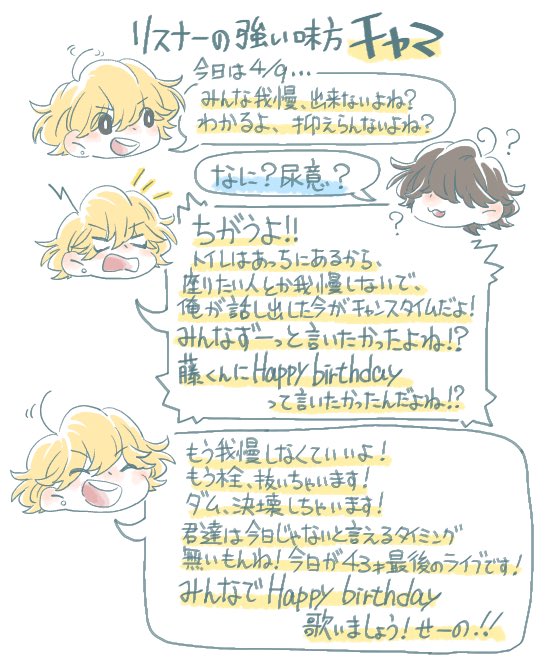 リスナーの強い味方 チャマ
今日は4/9...
みんな我慢、出来ないよね?
わかるよ、抑えらんないよね?
なに?尿意?
??
?
ちがうよ!!
トイレはあっちにあるから、
座りたい人とか我慢しないで、
俺が話し出した今がチャンスタイムだよ!
みんなずーっと言いたかったよね!?
藤くんにHappy birthday
って言いたかったんだよね!?
もう我慢しなくていいよ!
もう栓、抜いちゃいます!
ダム、決壊しちゃいます!
君達は今日じゃないと言えるタイミング
無いもんね!今日が43才最後のライブです!
みんなでHappy birthday
歌いましょう!せーの!!